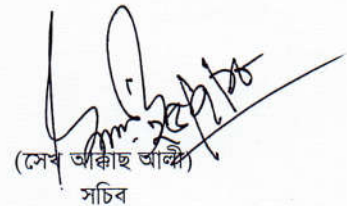 (সেখ আক্কাছ আলী)
সচিব